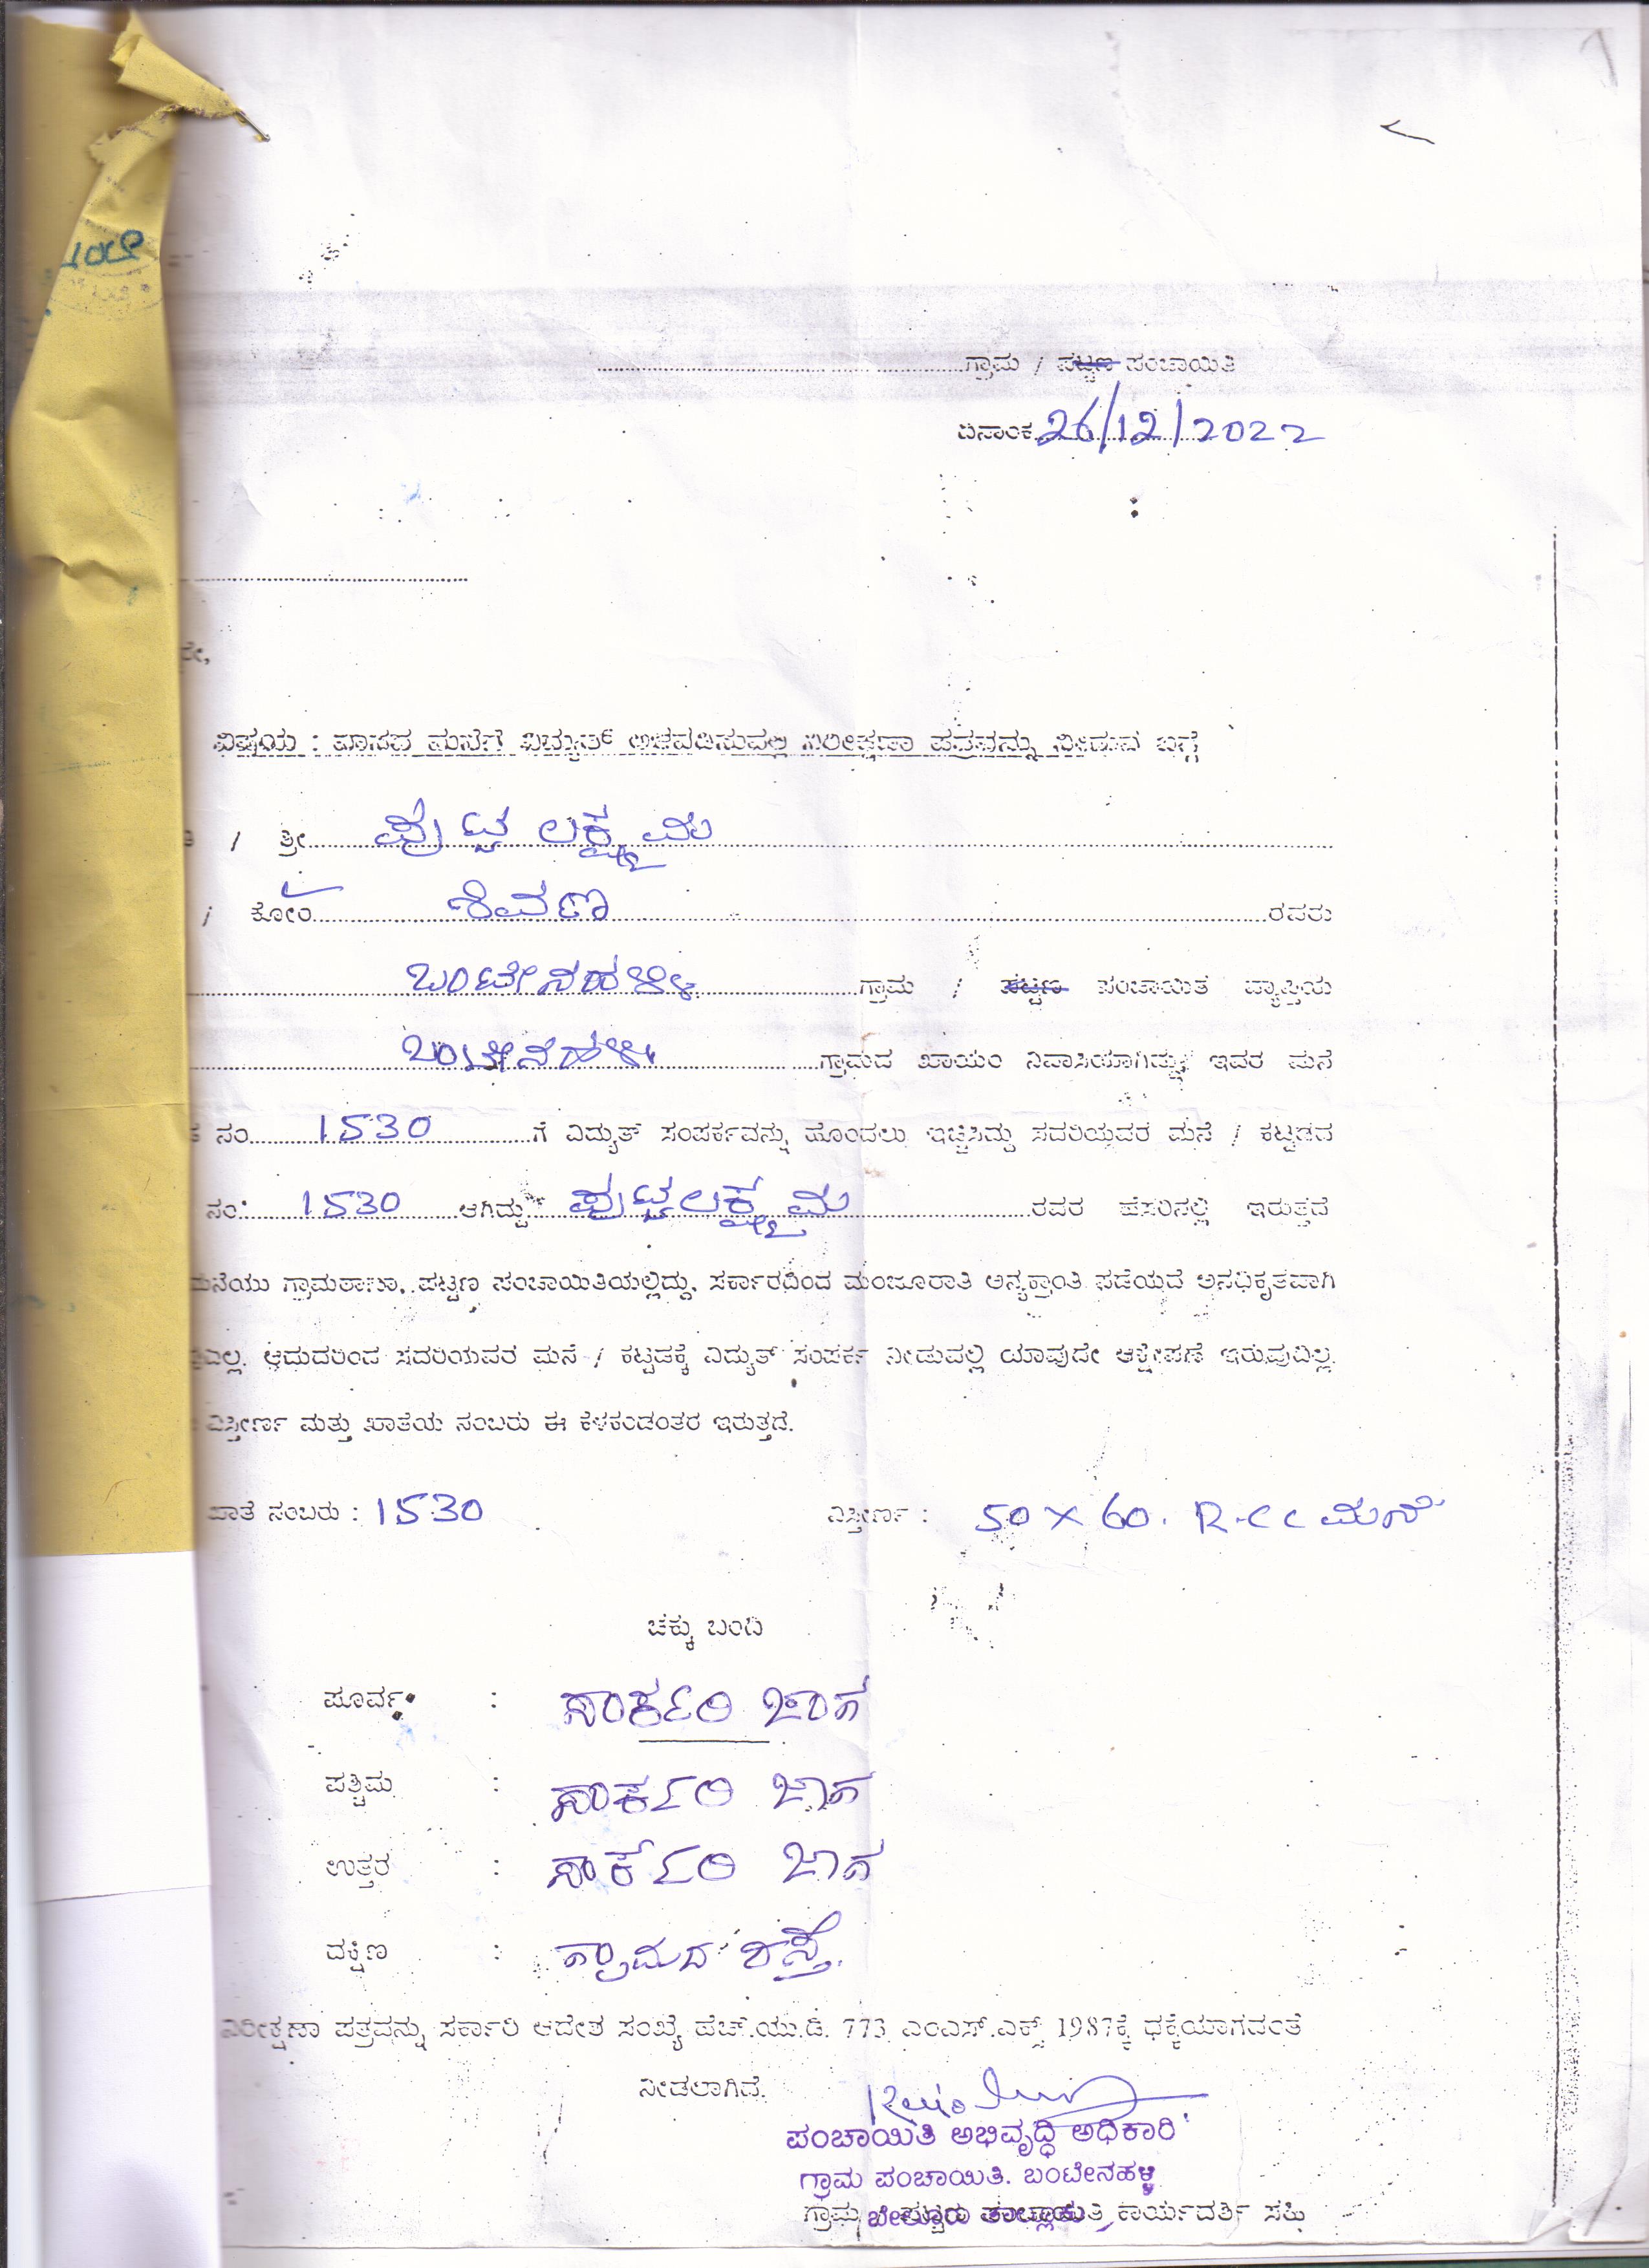 ಗ್ರಾಮ / ಪಟ್ಟಣ ಪಂಚಾಯಿತಿ
ದಿನಾಂಕ 26/12/2022
ವಿಷಯ : ವಾಸದ ಮನೆಗೆ ವಿದ್ಯುತ್ ಅಳವಡಿಸುವಲ್ಲಿ ನಿರೀಕ್ಷಣಾ ಪತ್ರವನ್ನು ನೀಡುವ ಬಗ್ಗೆ
/ ಶ್ರೀ ಪುಟ್ಟಲಕ್ಷ್ಮಮ್ಮ
/ ಕೋಂ ಶಿವಣ್ಣ ರವರು
ಬಂಟೇನಹಳ್ಳಿ ಗ್ರಾಮ / ಪಟ್ಟಣ ಪಂಚಾಯಿತ ವ್ಯಾಪ್ತಿಯ
ಬಂಟೇನಹಳ್ಳಿ ಗ್ರಾಮದ ಖಾಯಂ ನಿವಾಸಿಯಾಗಿದ್ದು, ಇವರ ಮನೆ
ನಂ 1530 ಗೆ ವಿದ್ಯುತ್ ಸಂಪರ್ಕವನ್ನು ಹೊಂದಲು ಇಚ್ಛಿಸಿದ್ದು ಸದರಿಯವರ ಮನೆ / ಕಟ್ಟಡದ
ನಂ. 1530 ಆಗಿದ್ದು ಪುಟ್ಟಲಕ್ಷ್ಮಮ್ಮ ರವರ ಹೆಸರಿನಲ್ಲಿ ಇರುತ್ತದೆ
ಮನೆಯು ಗ್ರಾಮಠಾಣಾ, ಪಟ್ಟಣ ಪಂಚಾಯಿತಿಯಲ್ಲಿದ್ದು, ಸರ್ಕಾರದಿಂದ ಮಂಜೂರಾತಿ ಅನ್ಯಕ್ರಾಂತಿ ಪಡೆಯದೆ ಅನಧಿಕೃತವಾಗಿ
ಆದುದರಿಂದ ಸದರಿಯವರ ಮನೆ / ಕಟ್ಟಡಕ್ಕೆ ವಿದ್ಯುತ್ ಸಂಪರ್ಕ ನೀಡುವಲ್ಲಿ ಯಾವುದೇ ಆಕ್ಷೇಪಣೆ ಇರುವುದಿಲ್ಲ.
ವಿಸ್ತೀರ್ಣ ಮತ್ತು ಖಾತೆಯ ನಂಬರು ಈ ಕೆಳಕಂಡಂತರ ಇರುತ್ತದೆ.
ಖಾತೆ ನಂಬರು : 1530 ವಿಸ್ತೀರ್ಣ : 50 X 60. R.CC ಮನೆ
ಚಕ್ಕು ಬಂದಿ
ಪೂರ್ವ : ಸಾರ್ಕರಿ ಜಾಗ
ಪಶ್ಚಿಮ : ಸಾರ್ಕರಿ ಜಾಗ
ಉತ್ತರ : ಸಾರ್ಕರಿ ಜಾಗ
ದಕ್ಷಿಣ : ಗ್ರಾಮದ ರಸ್ತೆ.
ನಿರೀಕ್ಷಣಾ ಪತ್ರವನ್ನು ಸರ್ಕಾರಿ ಆದೇಶ ಸಂಖ್ಯೆ ಹೆಚ್.ಯು.ಡಿ. 773 ಎಂಎಸ್.ಎಕ್ಸ್ 1987ಕ್ಕೆ ಧಕ್ಕೆಯಾಗದಂತೆ
ನೀಡಲಾಗಿದೆ.
ಪಂಚಾಯಿತಿ ಅಭಿವೃದ್ಧಿ ಅಧಿಕಾರಿ
ಗ್ರಾಮ ಪಂಚಾಯಿತಿ. ಬಂಟೇನಹಳ್ಳಿ
ಬೇಲೂರು ತಾಲ್ಲೂಕು
ಗ್ರಾಮ ಕಾರ್ಯದರ್ಶಿ ಸಹಿ